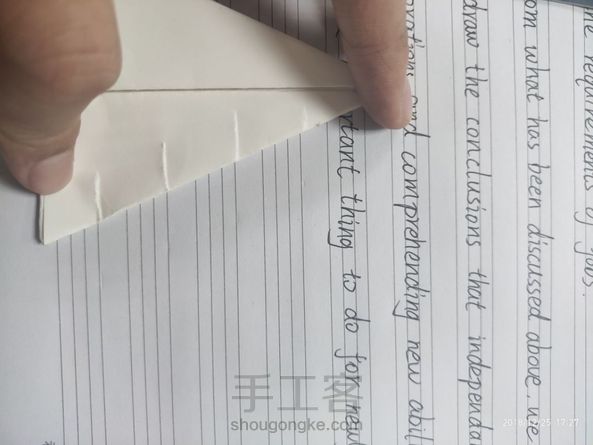 he requirements of jobs.
om what has been discussed above, we
draw the conclusions that independa
and comprehending new abil
rtant thing to do for new
手工客
shougongke.com
17:27